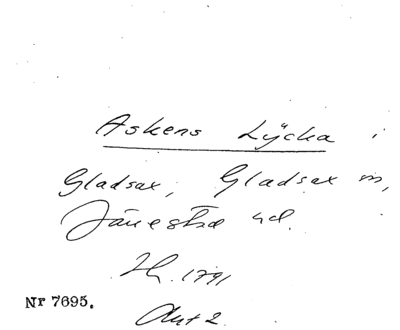 Askens Lÿcka i
Gladsax, Gladsax sn,
Järrestad hd.
Hh. 1791
Nr 7695.
Akt 2